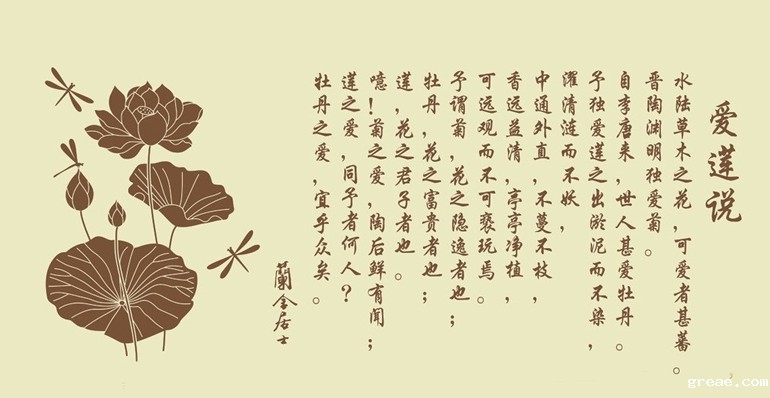 爱莲说
水陆草木之花，可爱者甚蕃。
晋陶渊明独爱菊。
自李唐来，世人甚爱牡丹。
予独爱莲之出淤泥而不染，
濯清涟而不妖，
中通外直，不蔓不枝，
香远益清，亭亭净植，
可远观而不可亵玩焉。
予谓菊，花之隐逸者也；
牡丹，花之富贵者也；
莲，花之君子者也。
噫！菊之爱，陶后鲜有闻；
莲之爱，同予者何人？
牡丹之爱，宜乎众矣。
蘭舍居士
greae.com